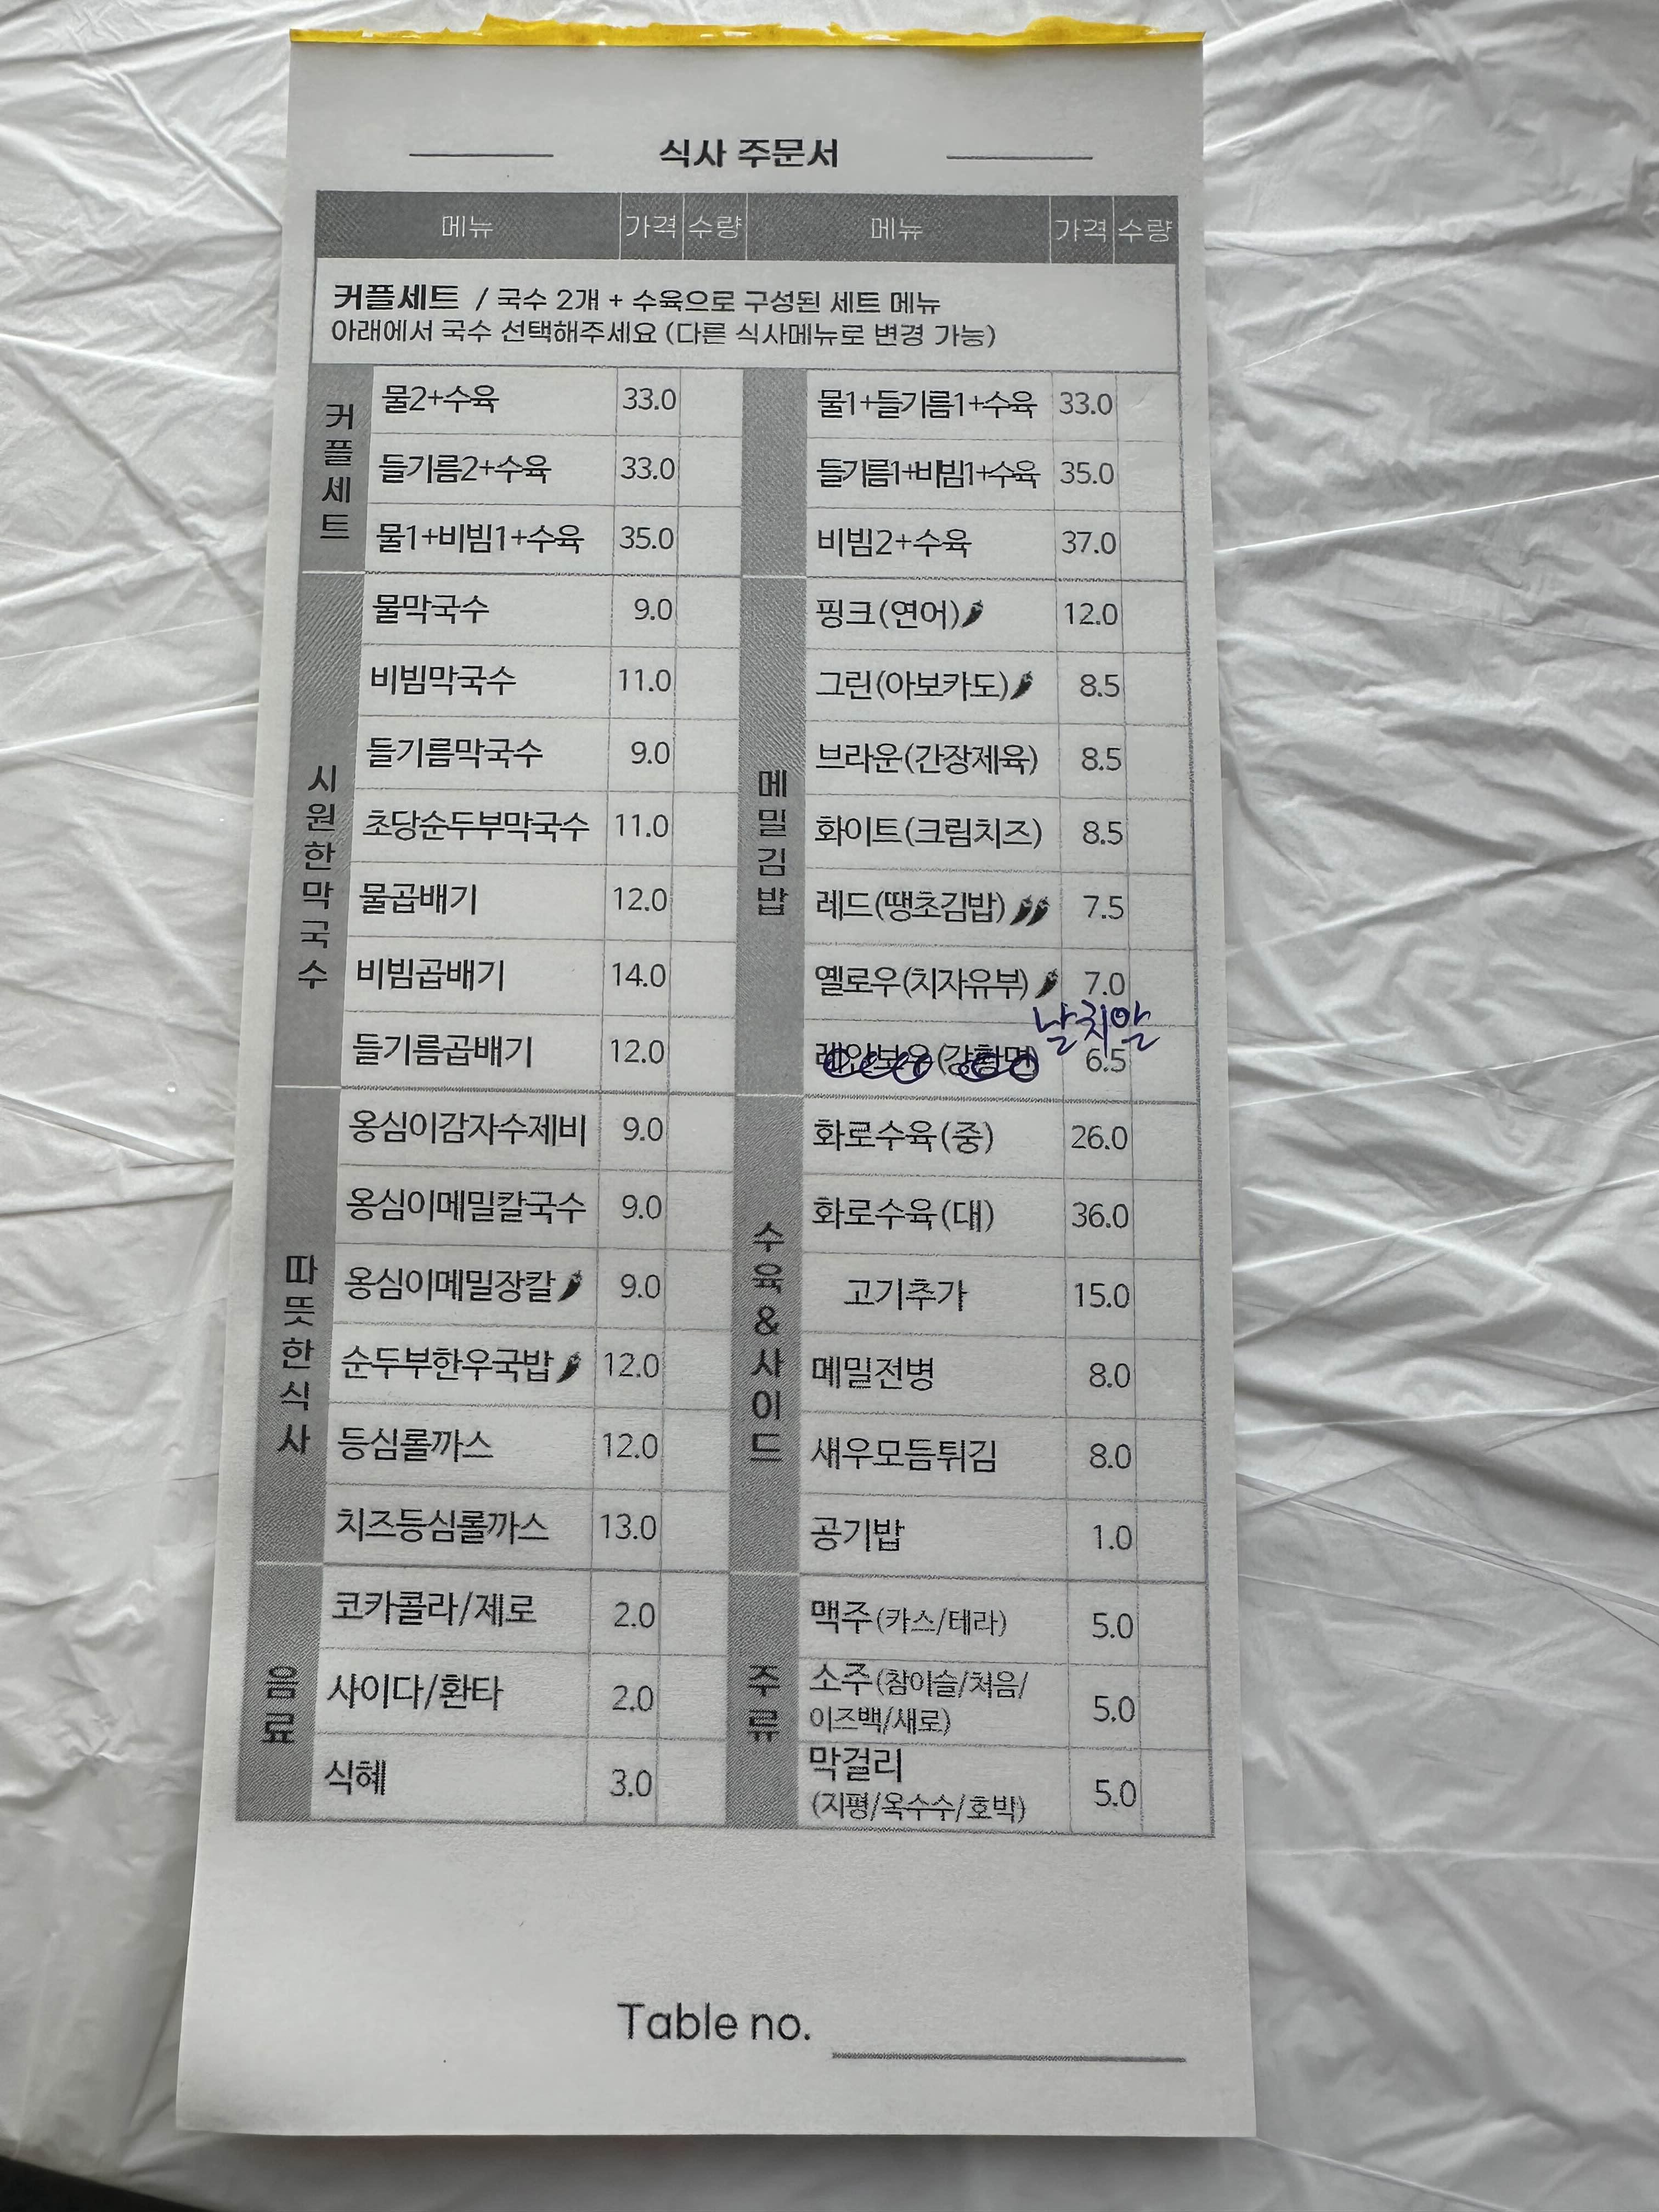 식사 주문서
메뉴 가격 수량 메뉴 가격 수량
커플세트 / 국수 2개 + 수육으로 구성된 세트 메뉴
아래에서 국수 선택해주세요 (다른 식사메뉴로 변경 가능)
커플세트
물2+수육 33.0
들기름2+수육 33.0
물1+비빔1+수육 35.0
물1+들기름1+수육 33.0
들기름1+비빔1+수육 35.0
비빔2+수육 37.0
시원한막국수
물막국수 9.0
비빔막국수 11.0
들기름막국수 9.0
초당순두부막국수 11.0
물곱배기 12.0
비빔곱배기 14.0
들기름곱배기 12.0
메밀김밥
핑크(연어) 12.0
그린(아보카도) 8.5
브라운(간장제육) 8.5
화이트(크림치즈) 8.5
레드(땡초김밥) 7.5
옐로우(치자유부) 7.0
날치알
레인보우(강황면) 6.5
따뜻한식사
옹심이감자수제비 9.0
옹심이메밀칼국수 9.0
옹심이메밀장칼 9.0
순두부한우국밥 12.0
등심롤까스 12.0
치즈등심롤까스 13.0
수육&사이드
화로수육(중) 26.0
화로수육(대) 36.0
고기추가 15.0
메밀전병 8.0
새우모듬튀김 8.0
공기밥 1.0
음료
코카콜라/제로 2.0
사이다/환타 2.0
식혜 3.0
주류
맥주(카스/테라) 5.0
소주(참이슬/처음/
이즈백/새로) 5.0
막걸리
(지평/옥수수/호박) 5.0
Table no.